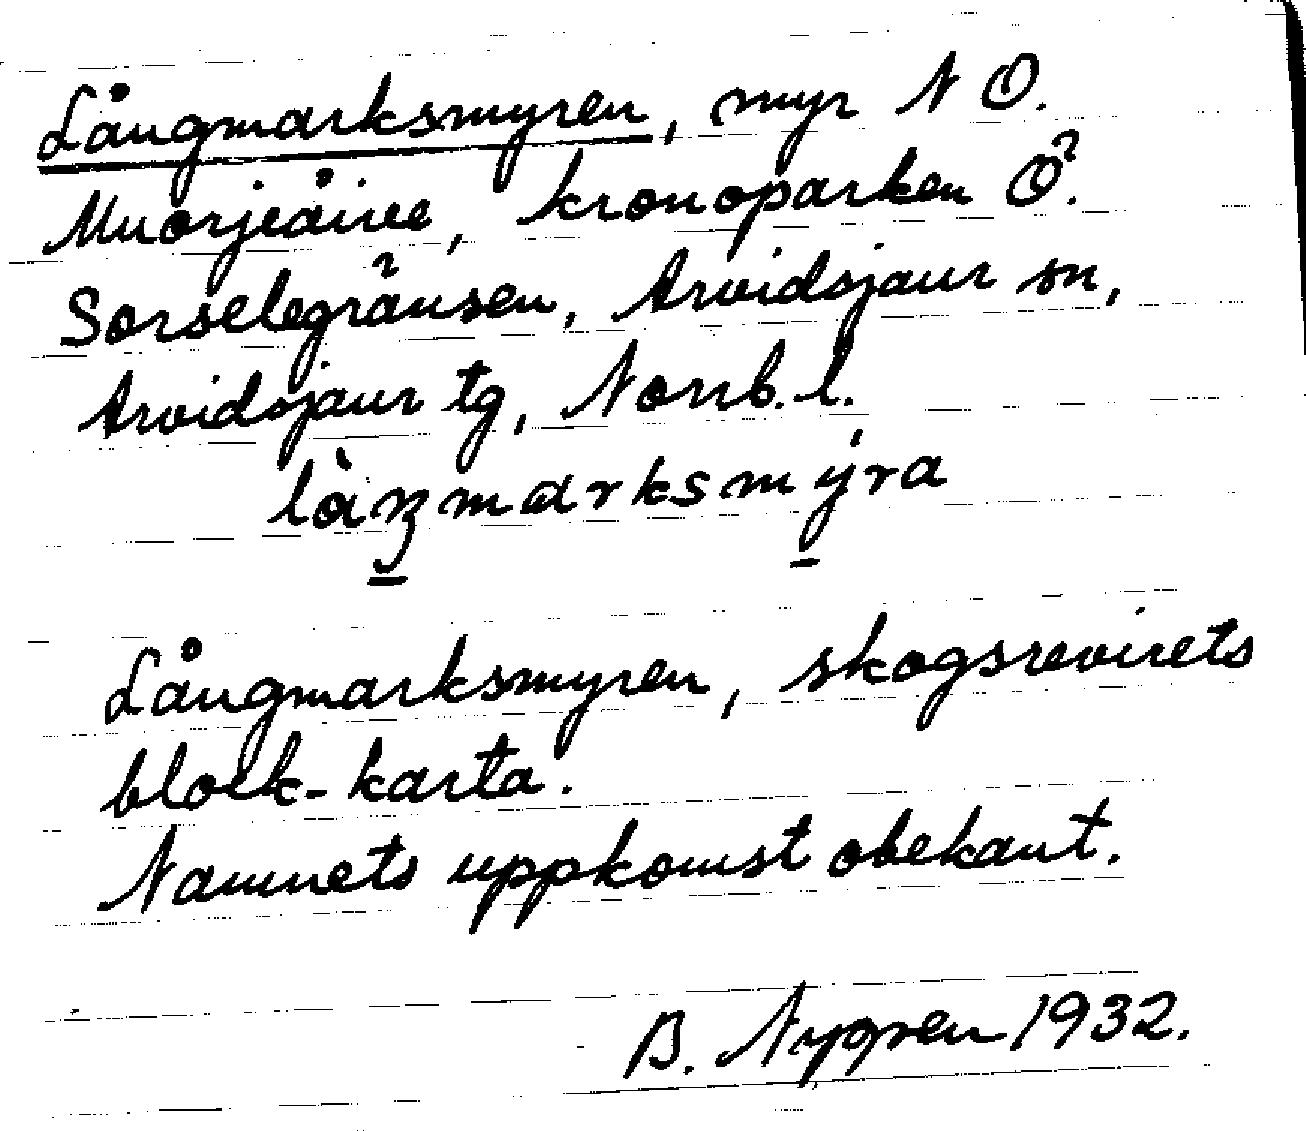 Långmarksmyren, myr N Ö.
Muorjeåive, kronoparken Ö.
Sorselegränsen, Arvidsjaur sn,
Arvidsjaur tg, Norrb. l.
låŋmarksmýra
Långmarksmyren, skogsrevirets
block-karta.
Namnets uppkomst obekant.
B. Nygren 1932.